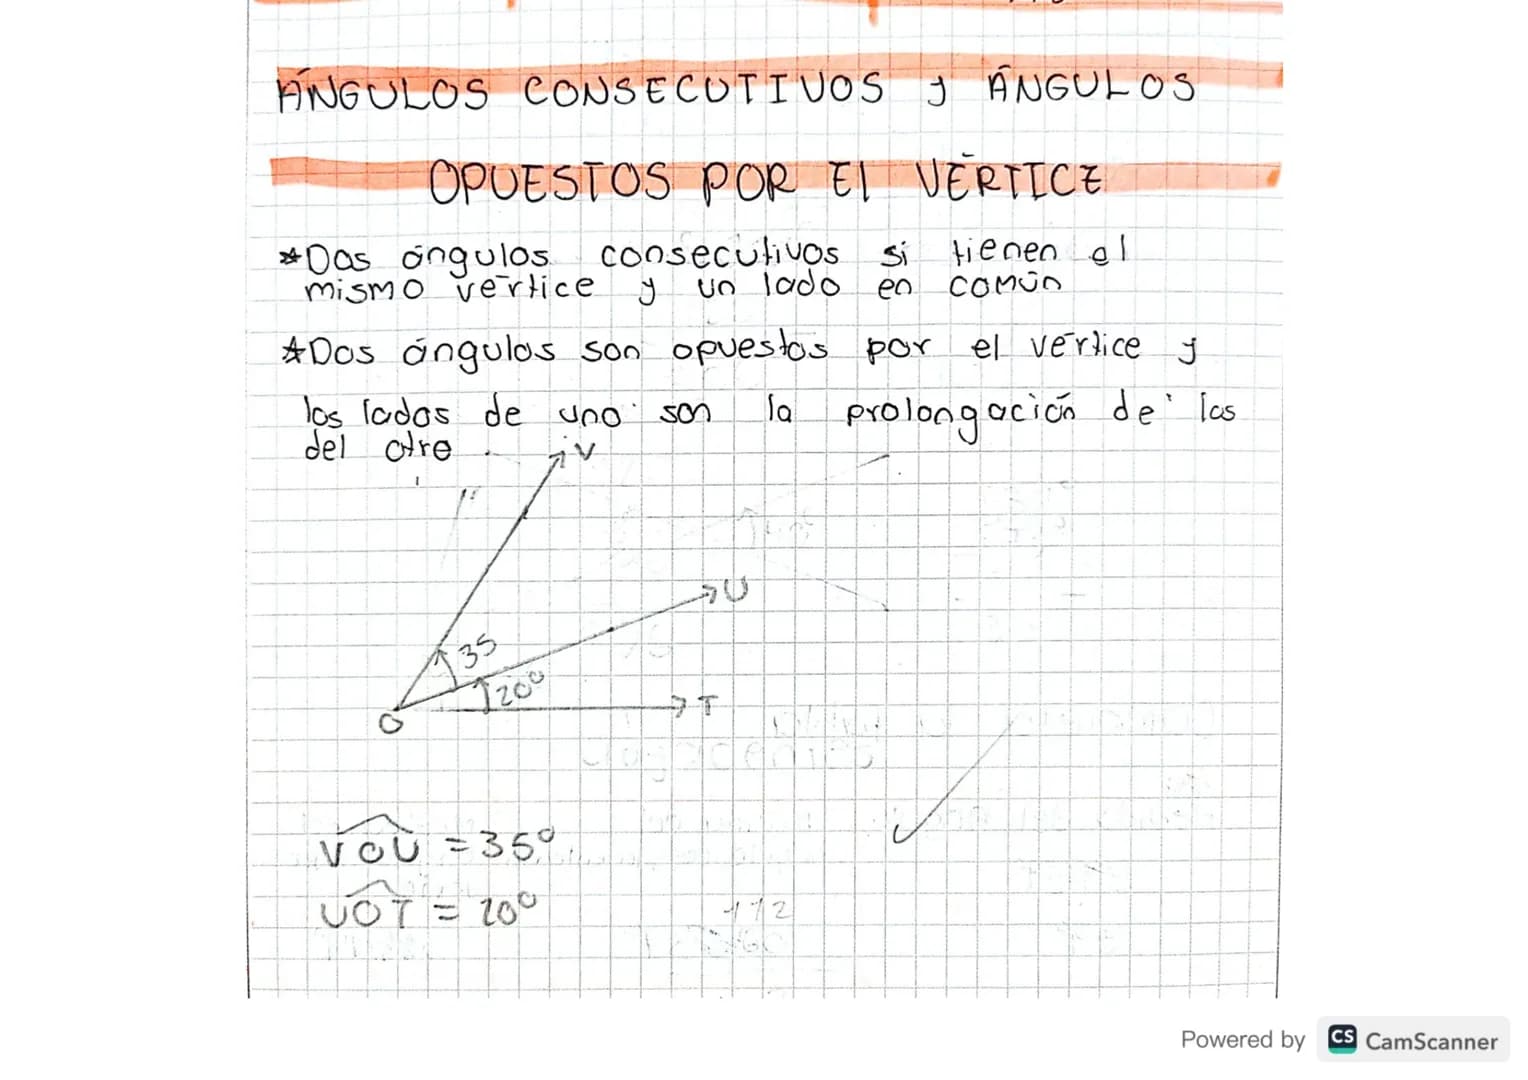 ÁNGULOS CONSECUTIVOS y ÁNGULOS
OPUESTOS POR El VÉRTICE
*Dos ángulos consecutivos si tienen el
mismo vértice y un lado en común
*Dos ángulos son opuestos por el vértice y
los lados de uno son la prolongación de los
del otro
V
U
35
20°
T
O
VOU = 35°
UOT = 20°
Powered by CS CamScanner